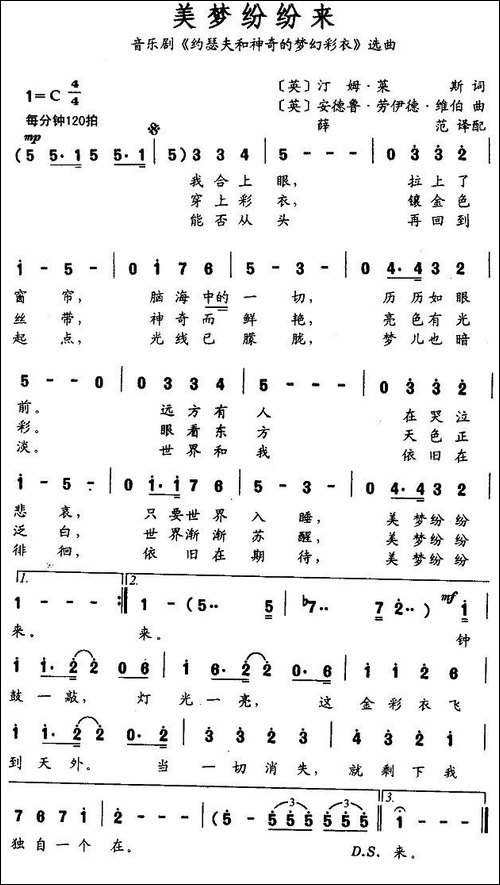 美梦纷纷来
音乐剧《约瑟夫和神奇的梦幻彩衣》选曲
1=C 4/4
〔英〕汀姆·莱斯 词
〔英〕安德鲁·劳伊德·维伯 曲
每分钟120拍
薛范 译配
mp
(5 5·1 5 5·1 | 5) 3 3 4 | 5 - - - | 0 3 3 2 |
我合上眼, 拉上了
穿上彩衣, 镶金色
能否从头 再回到
1 - 5 - | 0 1 7 6 | 5 - 3 - | 0 4·4 3 2 |
窗帘, 脑海中的一切, 历历如眼
丝带, 神奇而鲜艳, 亮色有光
起点, 光线已朦胧, 梦儿也暗
5 - - 0 | 0 3 3 4 | 5 - - - | 0 3 3 2 |
前。 远方有人 在哭泣
彩。 眼看东方 天色正
淡。 世界和我 依旧在
1 - 5 - | 0 1·1 7 6 | 5 - 3 - | 0 4·4 3 2 |
悲哀, 只要世界入睡, 美梦纷纷
泛白, 世界渐渐苏醒, 美梦纷纷
徘徊, 依旧在期待, 美梦纷纷
1. 2.
1 - - - :| 1 - (5·· 5 | ♭7·· 7 2··) mf 1 |
来。 来。 钟
1 1·2 2 0 6 | 1 6·2 2 0 6 | 1 1 2 6 |
鼓一敲, 灯光一亮, 这金彩衣飞
1 1·2 2 0·2 | 3 3 2 3 | 4 3 2 1 |
到天外。 当一切消失, 就剩下我
7 6 7 1 | 2 - - - | (5 - 5 5 5 5 5 5 | 5) 1 - - |
3 3 3.
独自一个在。 D.S. 来。